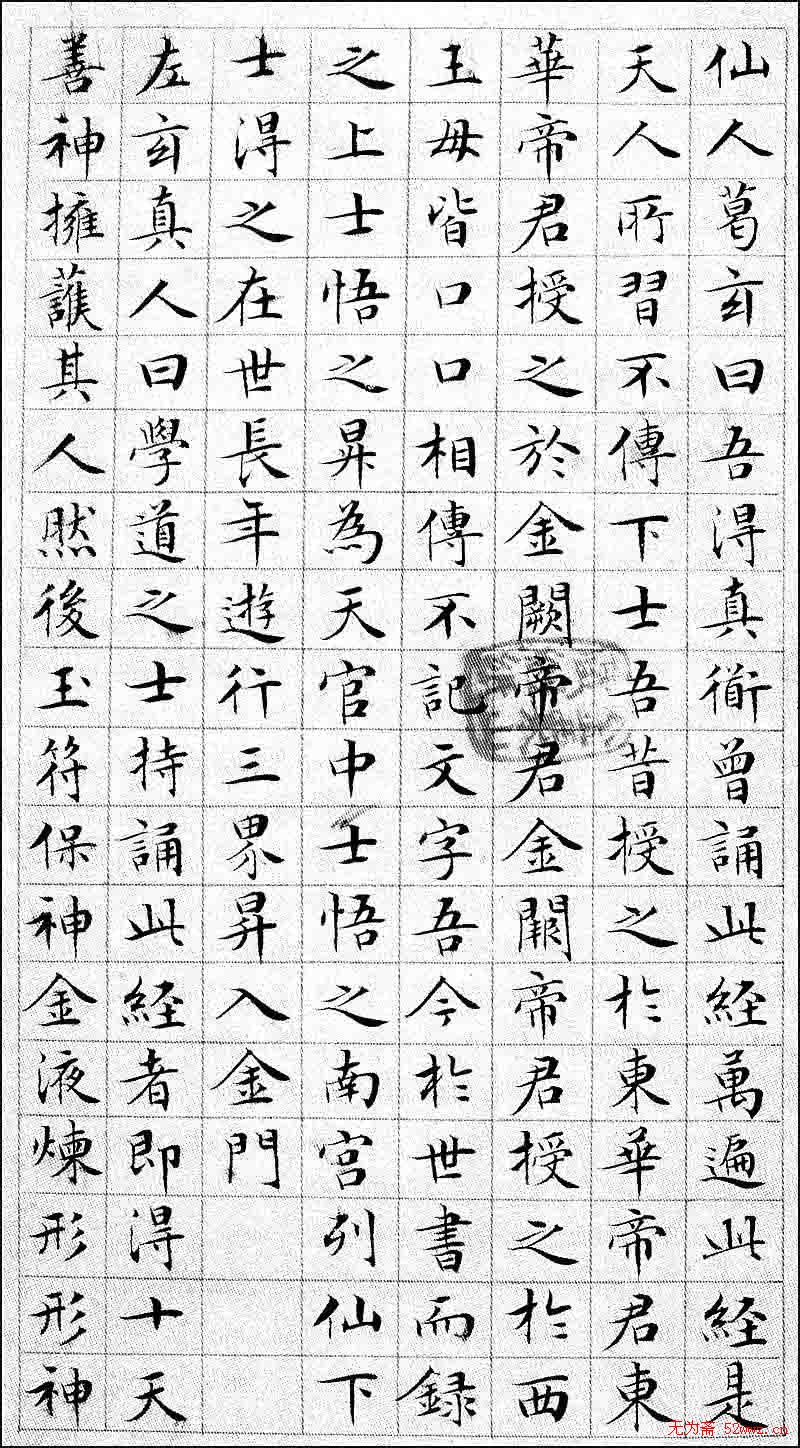 仙人葛玄曰吾得真衜曾誦此経萬遍此経是
天人所習不傳下士吾昔授之於東華帝君東
華帝君授之於金闕帝君金闕帝君授之於西
王母皆口口相傳不記文字吾今於世書而録
之上士悟之昇為天官中士悟之南宮列仙下
士得之在世長年遊行三界昇入金門
左玄真人曰學道之士持誦此経者即得十天
善神擁護其人然後玉符保神金液煉形形神
无为斋 52wwz.cn